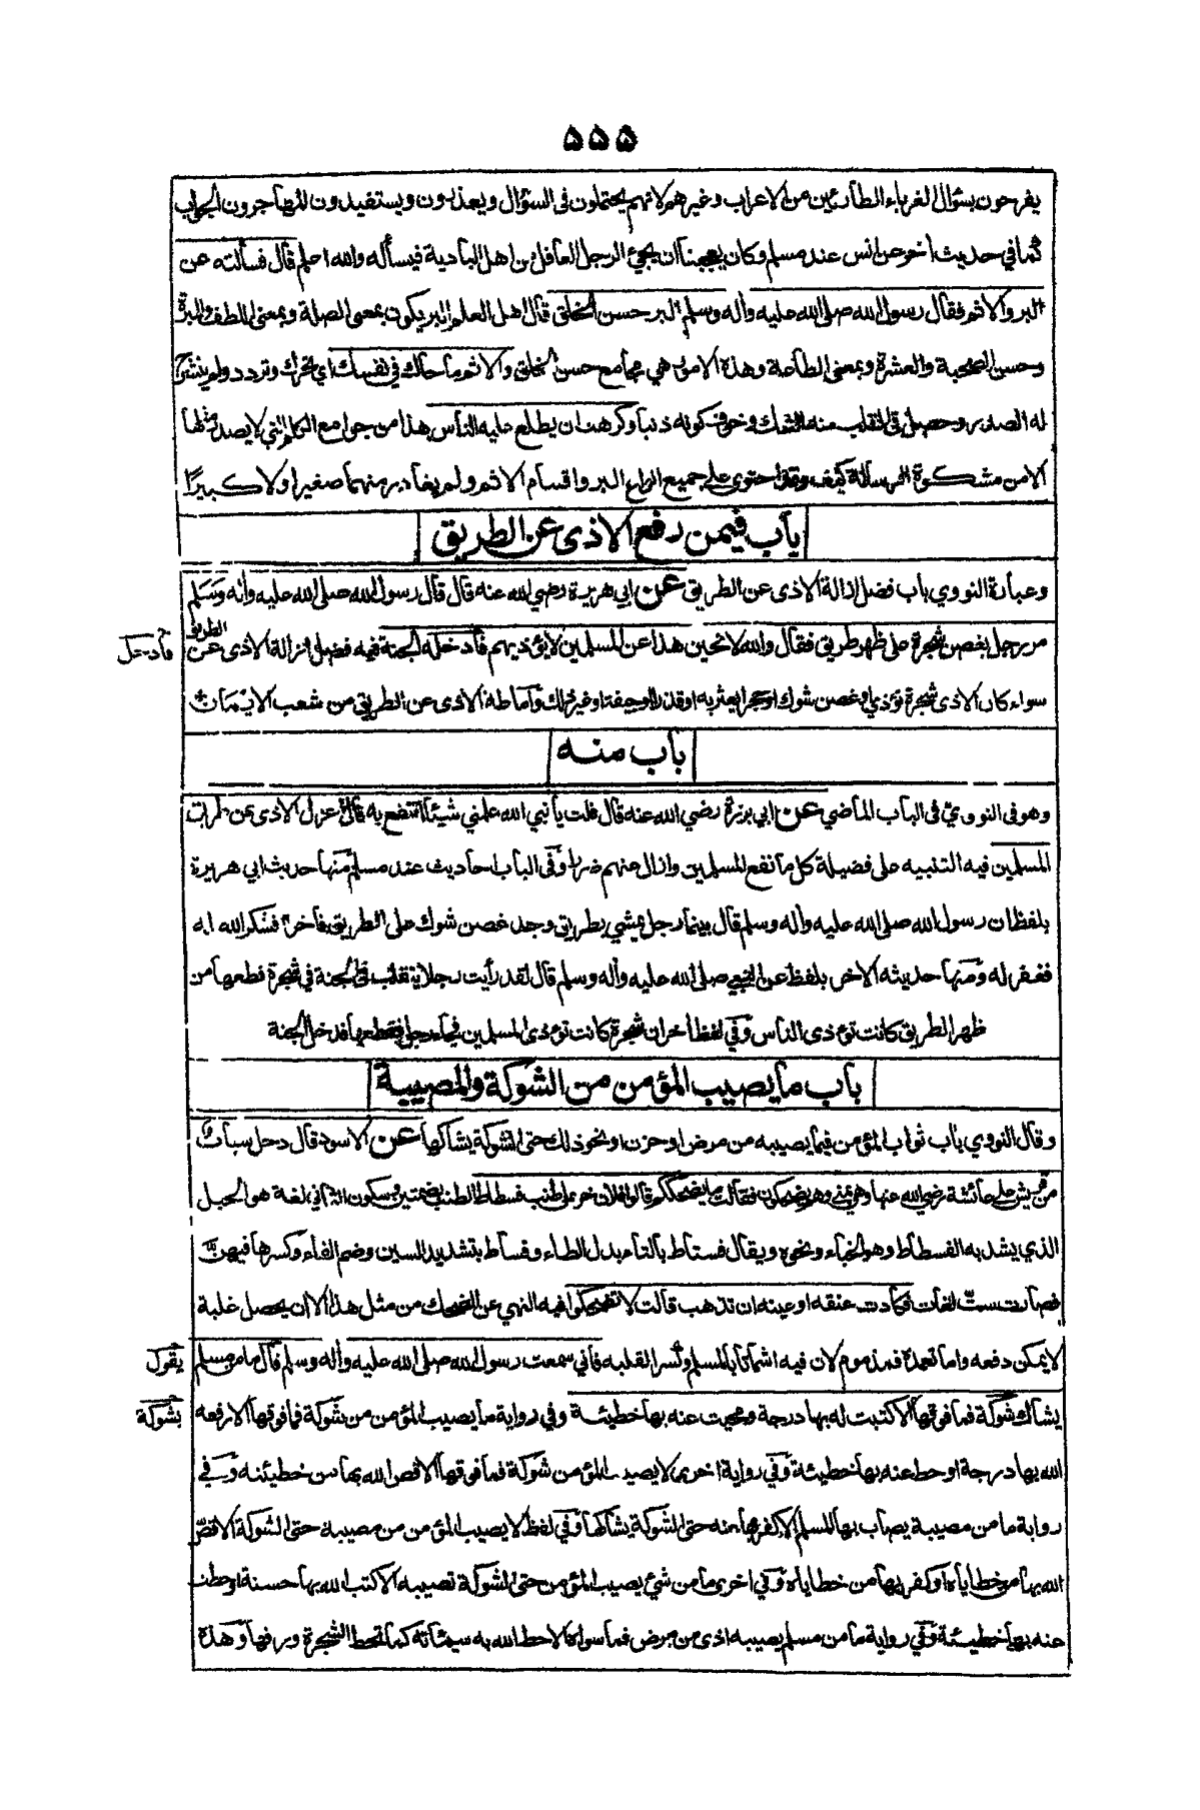 ۵۵۵
يفرحون بسؤال الغرباء الطارئين من الاعراب وغيرهم لانهم يحتملون فى السؤال ويعذرون ويستفيدون المهاجرون الجواب
كما في حديث اخر عن انس عند مسلم وكان يعجبنا ان يجيء الرجل العاقل من اهل البادية فيسأله والله اعلم قال فسألته عن
البر والاثم فقال رسول الله صلى الله عليه واله وسلم البر حسن الخلق قال اهل العلم البر يكون بمعنى الصلة وبمعنى اللطف والمبرة
وحسن الصحبة والعشرة وبمعنى الطاعة وهذه الامور هي مجامع حسن الخلق والاثم ما حاك في نفسك اي تحرك وتردد ولم ينشرح
له الصدر وحصل في القلب منه الشك وخوف كونه ذنبا وكرهت ان يطلع عليه الناس هذا من جوامع الكلم التي لا يصدر مثلها
الا من مشكوة الرسالة كيف وقد احتوى على جميع انواع البر واقسام الاثم ولم يغادر منهما صغيرا ولا كبيرا
باب فيمن رفع الاذى عن الطريق
وعبارة النووي باب فضل ازالة الاذى عن الطريق عن ابي هريرة رضي الله عنه قال قال رسول الله صلى الله عليه واله وسلم
مر رجل بغصن شجرة على ظهر طريق فقال والله لانحين هذا عن المسلمين لا يؤذيهم فأدخله الجنة فيه فضل ازالة الاذى عن الطريق
فادخل
سواء كان الاذى شجرة تؤذي او غصن شوك او حجرا يعثر به او قذرا او جيفة او غير ذلك واماطة الاذى عن الطريق من شعب الايمان
باب منه
وهو فى النووي فى الباب الماضي عن ابي برزة رضي الله عنه قال قلت يا نبي الله علمني شيئا انتفع به قال اعزل الاذى عن طريق
المسلمين فيه التنبيه على فضيلة كل ما نفع المسلمين وازال عنهم ضررا وفي الباب احاديث عند مسلم منها حديث ابي هريرة
بلفظ ان رسول الله صلى الله عليه واله وسلم قال بينما رجل يمشي بطريق وجد غصن شوك على الطريق فأخره فشكر الله له
فغفر له ومنها حديثه الاخر بلفظ عن النبي صلى الله عليه واله وسلم قال لقد رأيت رجلا يتقلب في الجنة في شجرة قطعها من
ظهر الطريق كانت تؤذى الناس وفي لفظ اخر ان شجرة كانت تؤذى المسلمين فجاء رجل فقطعها فدخل الجنة
باب ما يصيب المؤمن من الشوكة والمصيبة
وقال النووي باب ثواب المؤمن فيما يصيبه من مرض او حزن او نحو ذلك حتى الشوكة يشاكها عن الاسود قال دخل شباب
من قريش على عائشة رضي الله عنها وهي بمنى وهم يضحكون فقالت ما يضحككم قالوا فلان خر على طنب فسطاط الطنب بضمتين وسكون الثاني لغة هو الحبل
الذي يشد به الفسطاط وهو الخباء ونحوه ويقال فستاط بالتاء بدل الطاء وفساط بتشديد السين وضم الفاء وكسرها فيهن
فصارت ست لغات فكادت عنقه او عينه ان تذهب قالت لا تضحكوا فيه النهي عن الضحك من مثل هذا الا ان يحصل غلبة
لا يمكن دفعه واما تعمده فمذموم لان فيه اشماتا بالمسلم وكسرا لقلبه فاني سمعت رسول الله صلى الله عليه واله وسلم قال ما من مسلم
يقول
يشاك شوكة فما فوقها الا كتبت له بها درجة ومحيت عنه بها خطيئة وفي رواية ما يصيب المؤمن من شوكة فما فوقها الا رفعه
بشوكة
الله بها درجة او حط عنه بها خطيئة وفي رواية اخرى لا يصيب المؤمن شوكة فما فوقها الا قص الله بها من خطيئته وفي
رواية ما من مصيبة يصاب بها المسلم الا كفر بها عنه حتى الشوكة يشاكها وفي لفظ لا يصيب المؤمن من مصيبة حتى الشوكة الا قص
الله بها من خطاياه او كفر بها من خطاياه وفي اخرى ما من شئ يصيب المؤمن حتى الشوكة تصيبه الا كتب الله بها حسنة او حطت
عنه بها خطيئة وفي رواية ما من مسلم يصيبه اذى من مرض فما سواه الا حط الله به سيئاته كما تحط الشجرة ورقها وهذه